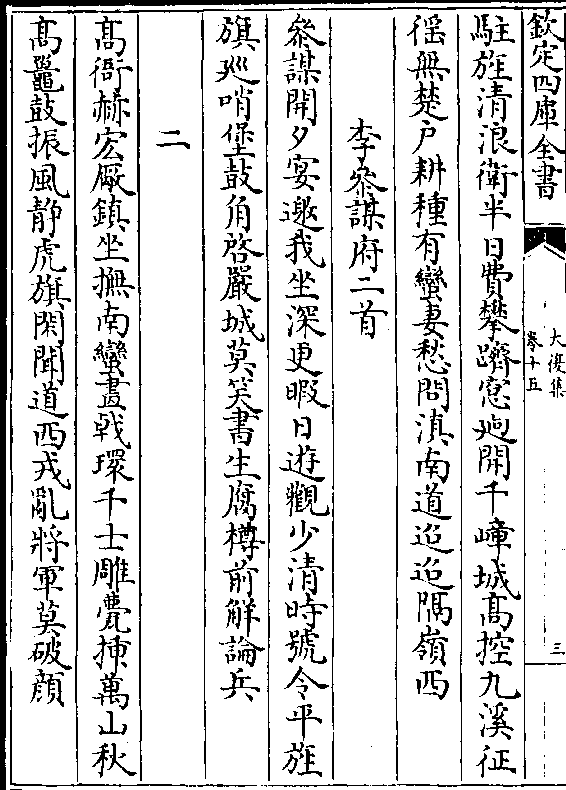 欽定四庫全書
大復集
卷十五
三
駐旌清浪衛半日費攀躋窓逈開千嶂城高控九溪征
徭無楚戶耕種有蠻妻愁問滇南道迢迢隔嶺西
李叅謀府二首
叅謀開夕宴邀我坐深更暇日遊觀少清時號令平旌
旗廵哨堡鼓角啓嚴城莫笑書生腐樽前解論兵
二
高衙赫宏厰鎮坐撫南蠻畫戟環千士雕甍揷萬山秋
高鼉鼓振風静虎旗閑聞道西戎亂將軍莫破顔